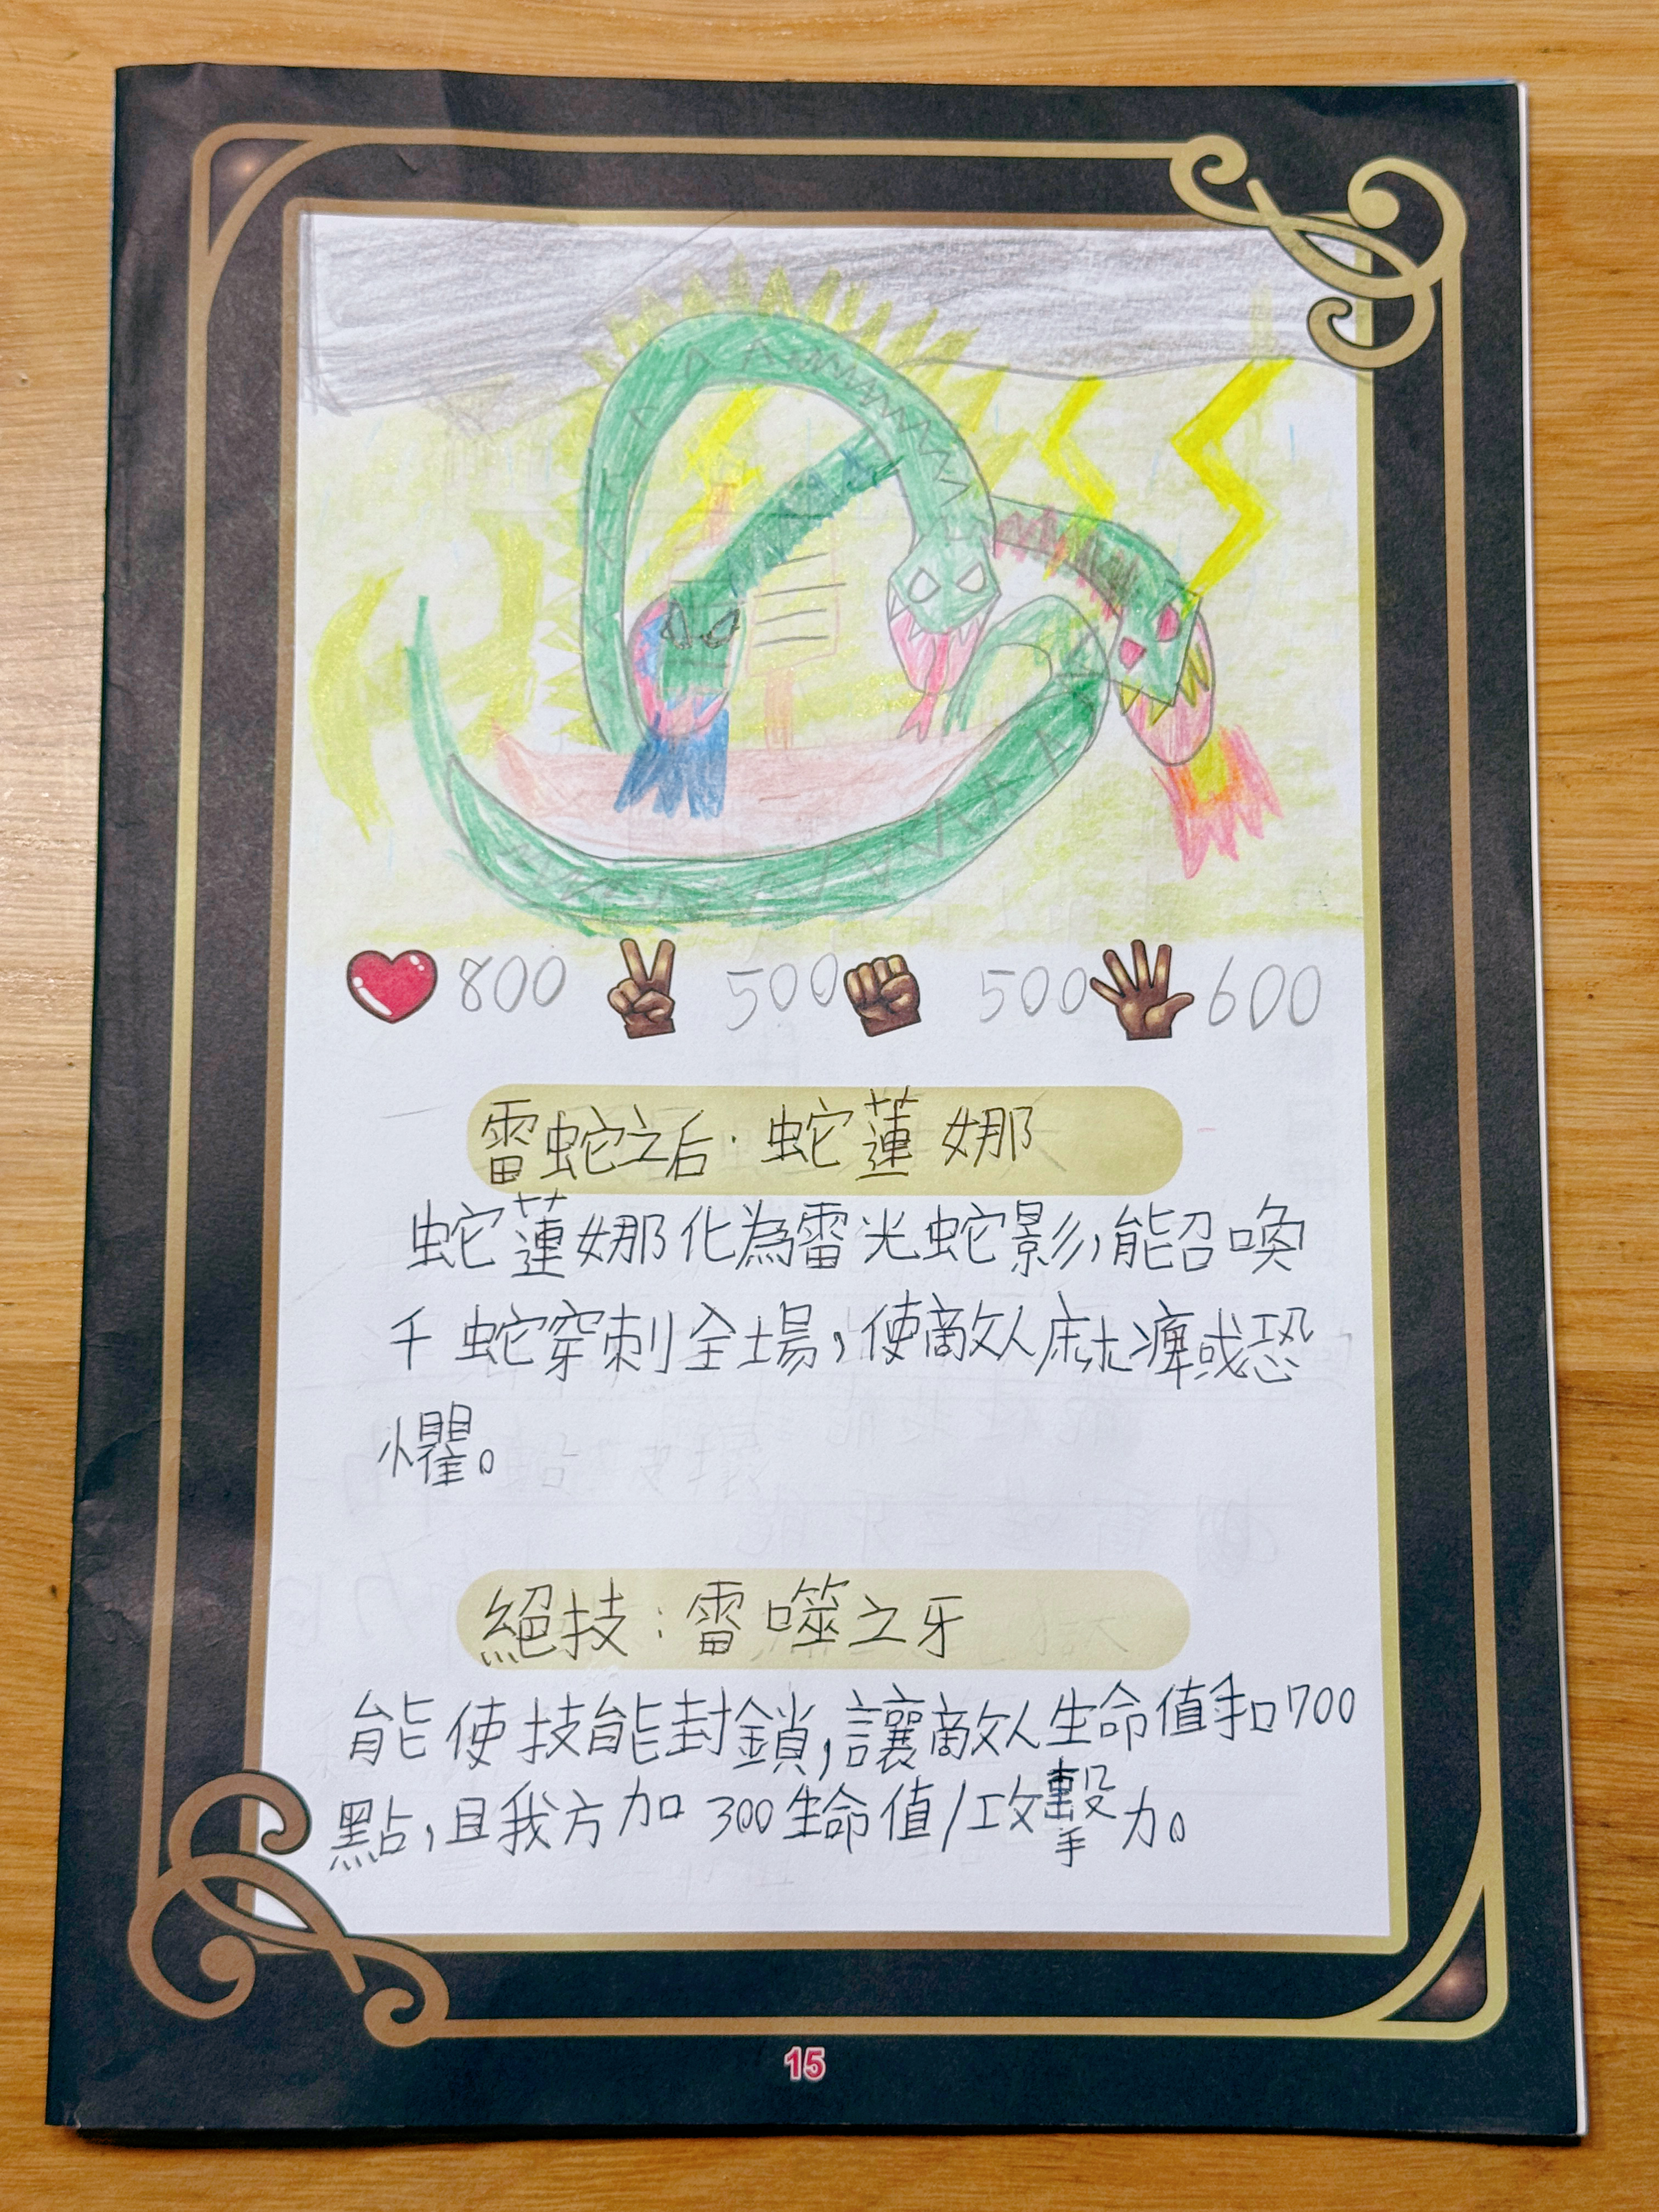 800 500 500 600
雷蛇之后·蛇蓮娜
蛇蓮娜化為雷光蛇影,能召喚
千蛇穿刺全場,使敵人麻痺或恐
懼。
絕技:雷噬之牙
能使技能封鎖,讓敵人生命值扣700
點,且我方加300生命值/攻擊力。
15